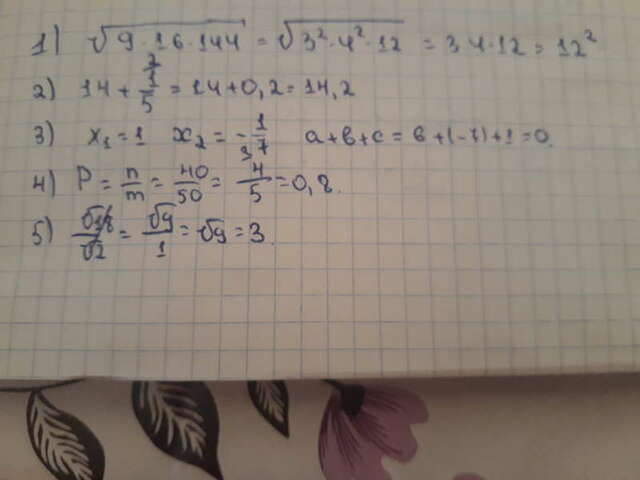 1) √9·16·144 = √3²·4²·12 = 3 4·12 = 12²
2) 14 + 1/5 = 14+0,2 = 14,2
3) x₁=1 x₂ = -1/7 a+b+c = 6+(-7)+1=0.
4) P = n/m = 40/50 = 4/5 = 0,8.
5) √18/√2 = √9/1 = √9 = 3.